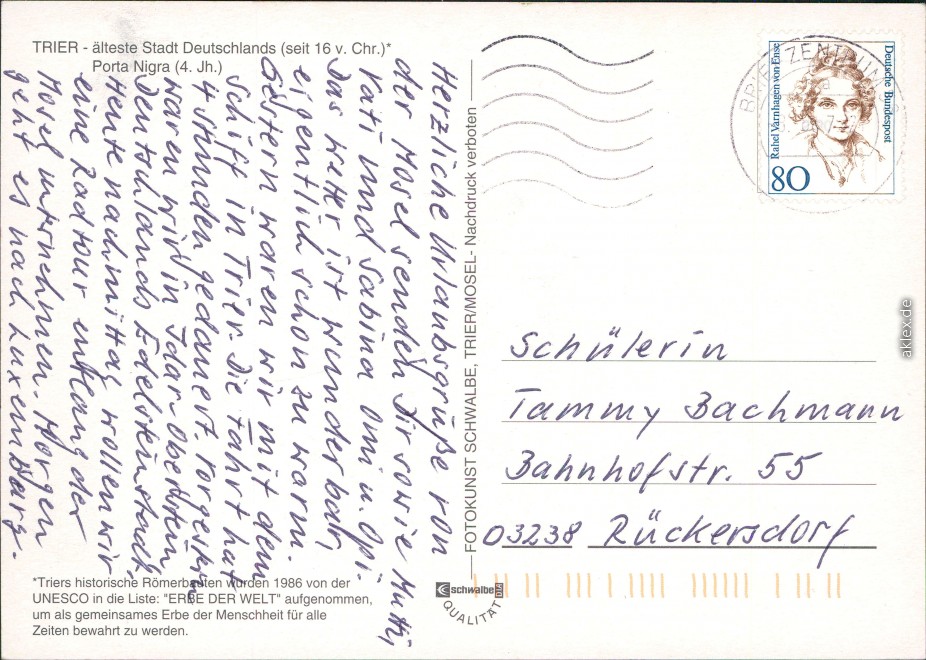 TRIER - älteste Stadt Deutschlands (seit 16 v. Chr.)*
Porta Nigra (4. Jh.)
Herzliche Urlaubsgrüße von
der Mosel senden Dir sowie Mutti,
Vati und Sabina Omi u. Opi.
Das Wetter ist wunderbar,
eigentlich schon zu warm.
Gestern waren wir mit dem
Schiff in Trier. Die Fahrt hat
4 Stunden gedauert. Vorgestern
waren wir in Idar-Oberstein,
Deutschlands Edelsteinstadt.
Heute nachmittag wollen wir
eine Radtour entlang der
Mosel unternehmen. Morgen
geht es nach Luxemburg.
*Triers historische Römerbauten wurden 1986 von der
UNESCO in die Liste: "ERBE DER WELT" aufgenommen,
um als gemeinsames Erbe der Menschheit für alle
Zeiten bewahrt zu werden.
FOTOKUNST SCHWALBE, TRIER/MOSEL - Nachdruck verboten
schwalbe
QUALITÄT
BRIEFZENTRUM
Rahel Varnhagen von Ense
Deutsche Bundespost
80
Schülerin
Tammy Bachmann
Bahnhofstr. 55
03238 Rückersdorf
aklex.de